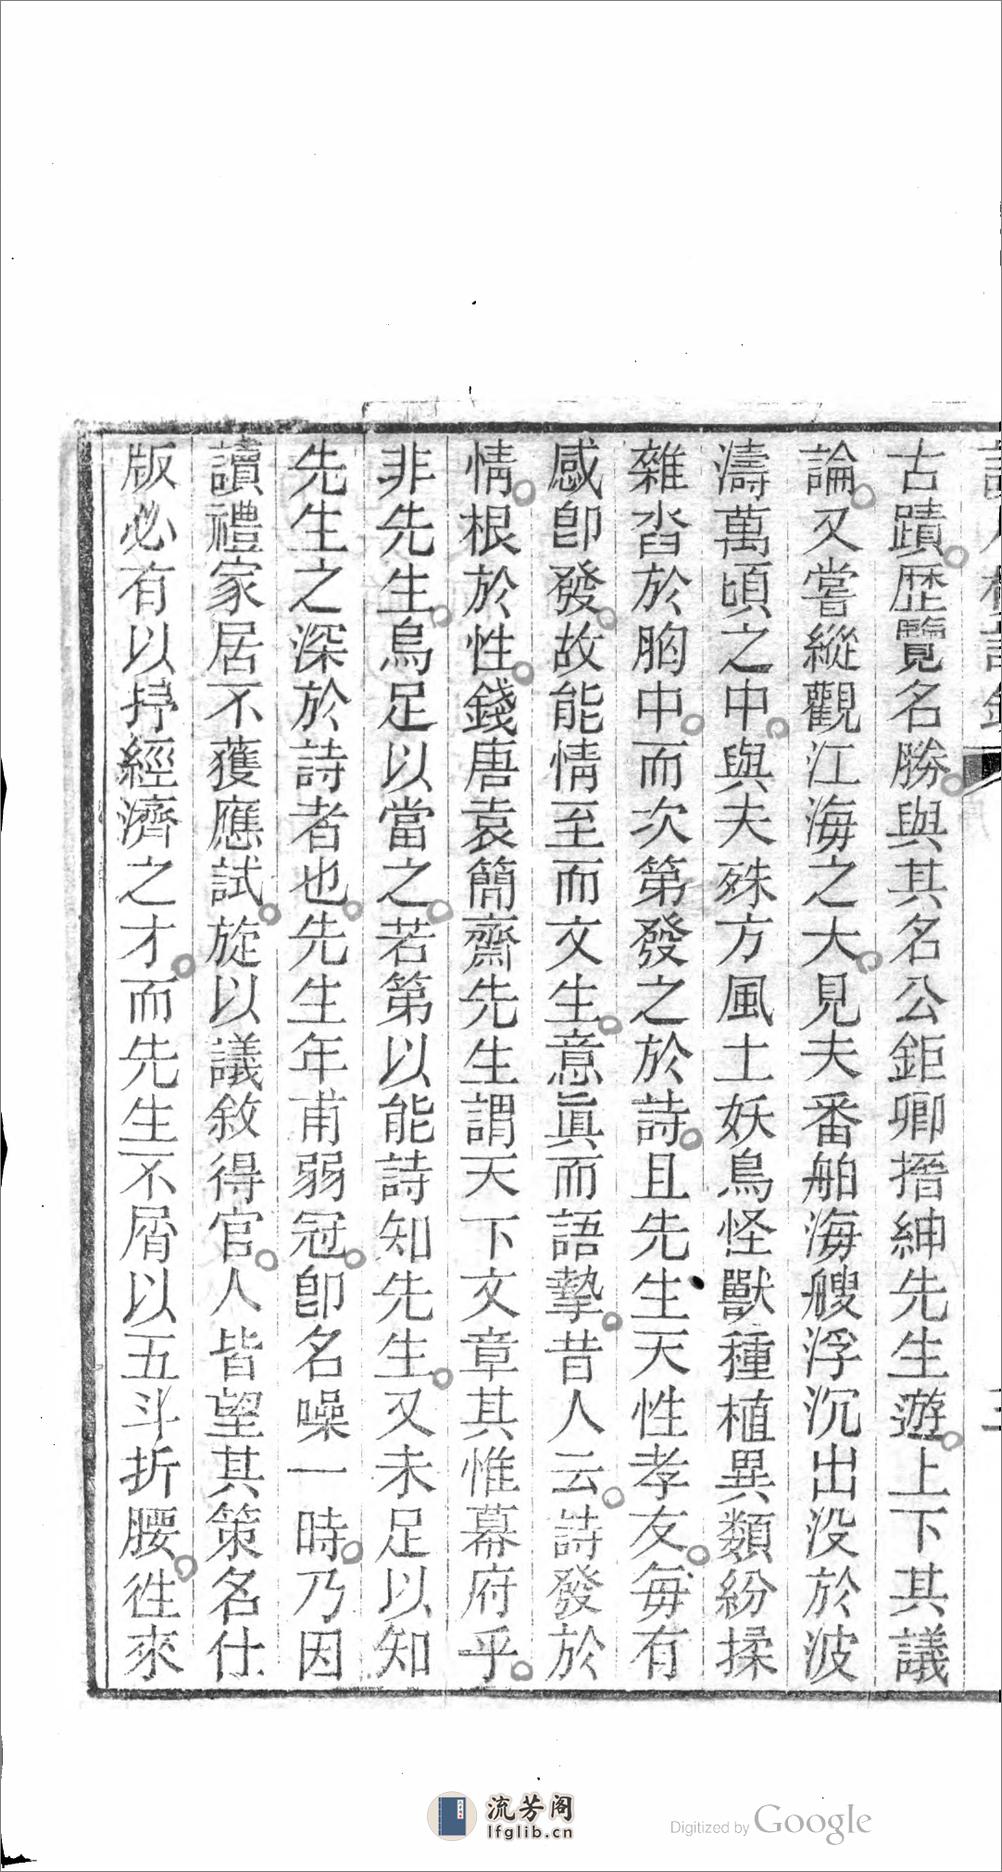 古蹟歷覽名勝與其名公鉅卿搢紳先生遊上下其議
論又嘗縱觀江海之大見夫番舶海艘浮沉出没於波
濤萬頃之中與夫殊方風土妖鳥怪獸種植異類紛揉
雜沓於胸中而次第發之於詩且先生天性孝友每有
感卽發故能情至而文生意眞而語摯昔人云詩發於
情根於性錢唐袁簡齋先生謂天下文章其惟幕府乎
非先生烏足以當之若第以能詩知先生又未足以知
先生之深於詩者也先生年甫弱冠卽名噪一時乃因
讀禮家居不獲應試旋以議敘得官人皆望其策名仕
版必有以抒經濟之才而先生不屑以五斗折腰往來
流芳阁
lfglib.cn
Digitized by Google